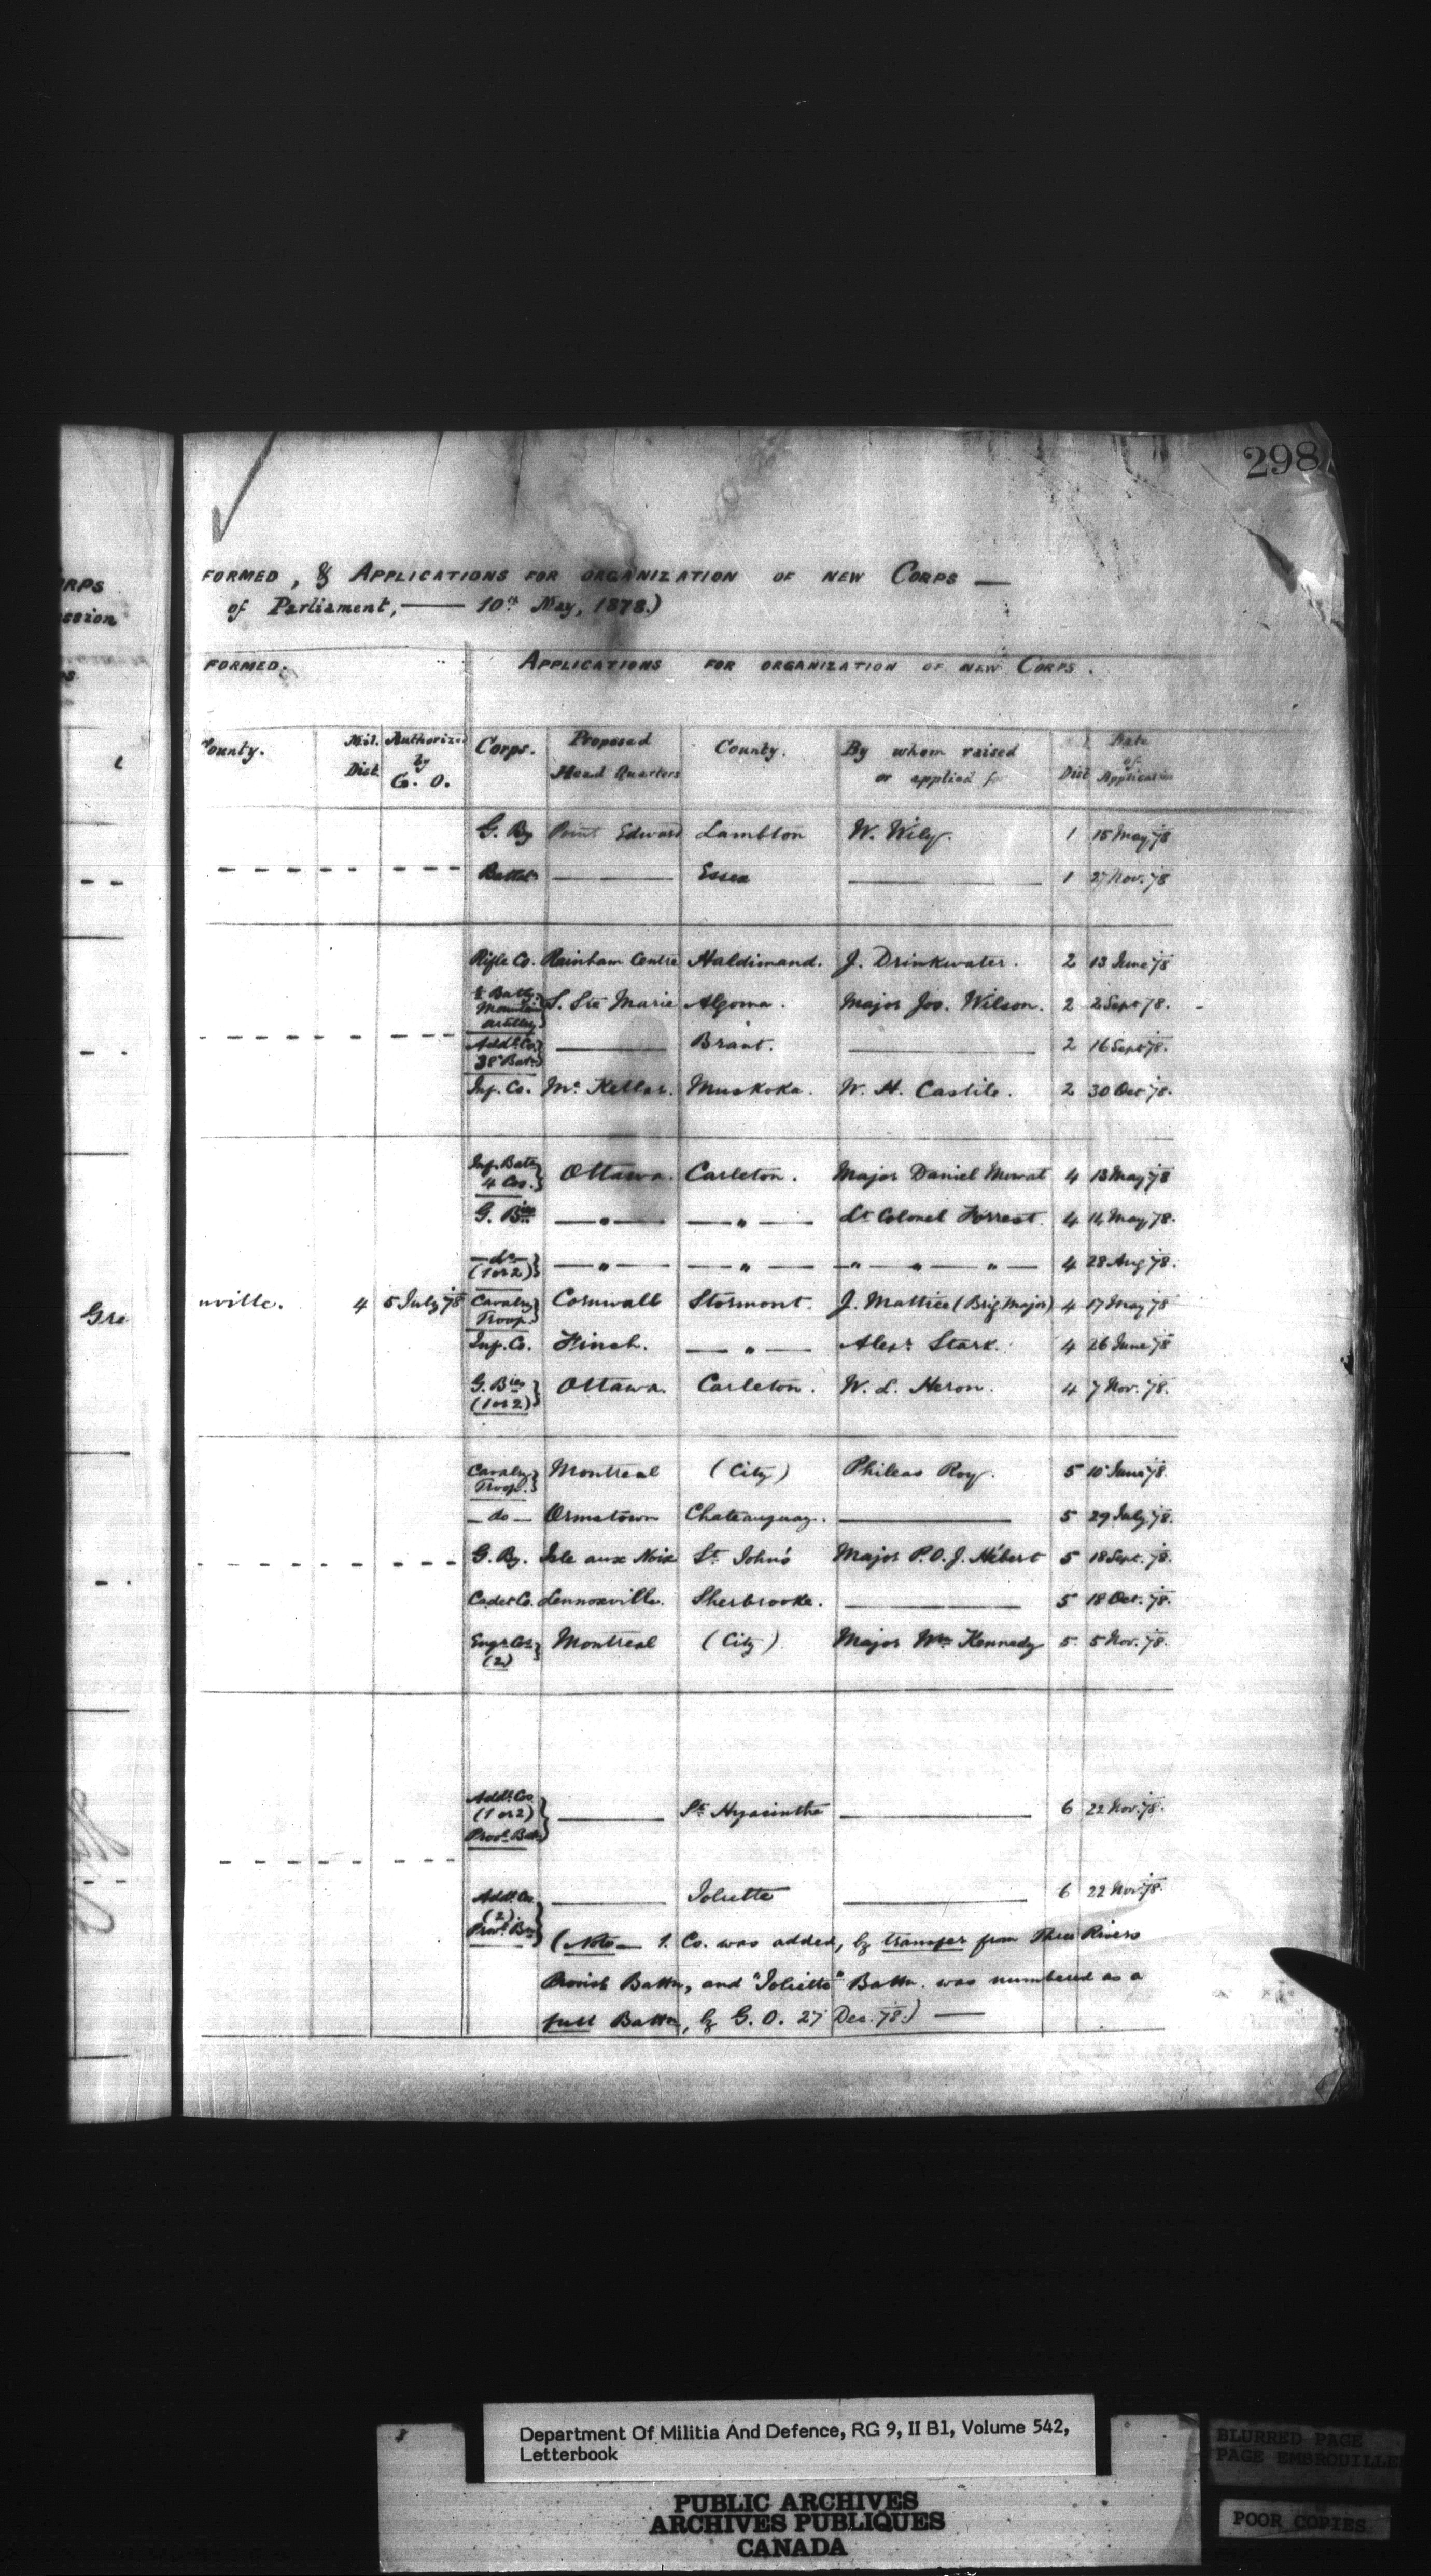 298
FORMED, & APPLICATIONS FOR ORGANIZATION OF NEW CORPS —
of Parliament, — 10th May, 1878.)
FORMED. APPLICATIONS FOR ORGANIZATION OF NEW CORPS.
County. Mil. Dist. Authorized by G. O. Corps. Proposed Head Quarters County. By whom raised or applied for Dist Date of Application
G. By Point Edward Lambton W. Wily. 1 15 May 78
Battn — Essex — 1 27 Nov. 78
Rifle Co. Rainham Centre Haldimand. J. Drinkwater. 2 13 June 78
½ Batty. Mountain artillery} S. Ste Marie Algoma. Major Jos. Wilson. 2 2 Sept 78.
Addl. Co. 38th Batn} — Brant. — 2 16 Sept 78.
Inf. Co. Mc Kellar. Muskoka. W. H. Castile. 2 30 Oct 78.
Inf. Batn 4 Cos.} Ottawa. Carleton. Major Daniel Mowat 4 13 May 78
G. Bies — " — — " — Lt Colonel Forrest. 4 14 May 78.
— do — (1 or 2)} — " — — " — — " — " — " — 4 28 Aug 78.
Gre
nville. 4 5 July 78 Cavalry Troop.} Cornwall Stormont. J. Mattice (Brig Major) 4 17 May 78
Inf. Co. Finch. — " — Alexr. Stark. 4 26 June 78
G. Bies (1 or 2)} Ottawa. Carleton. W. L. Heron. 4 7 Nov. 78.
Cavalry Troop.} Montreal (City) Phileas Roy. 5 10 June 78.
— do — Ormstown Chateauguay. — 5 29 July 78.
G. By. Isle aux Noix St. John's Major P. O. J. Hébert 5 18 Sept. 78.
Cadet Co. Lennoxville. Sherbrooke. — 5 18 Oct. 78.
Engr. Cos (2)} Montreal (City) Major Wm Kennedy 5. 5 Nov. 78.
Addl. Cos (1 or 2) Provl. Batn} — St. Hyacinthe — 6 22 Nov. 78.
Addl. Cos (2). Provl. Bn} — Joliette — 6 22 Nov. 78.
(Note — 1. Co. was added, by transfer from Three Rivers
Provisl Battn, and "Joliette" Battn. was numbered as a
full Battn, by G. O. 27 Dec. 78.) —
Department Of Militia And Defence, RG 9, II B1, Volume 542,
Letterbook
PUBLIC ARCHIVES
ARCHIVES PUBLIQUES
CANADA
BLURRED PAGE
PAGE EMBROUILLE
POOR COPIES